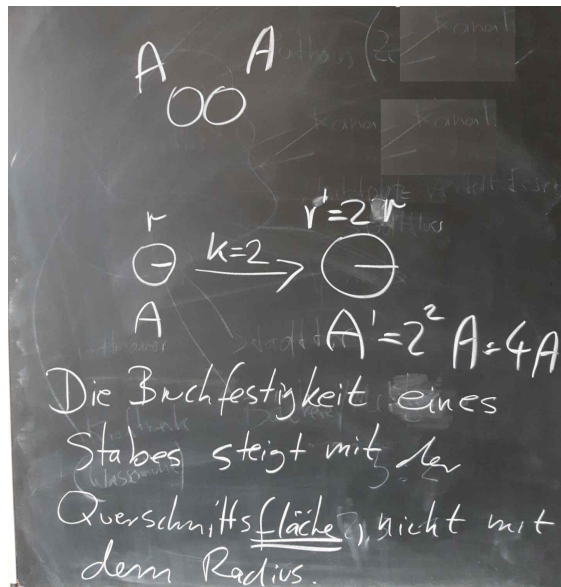 A A
r r'=2 r
k=2
A A'=2² A=4A
Die Bruchfestigkeit eines
Stabes steigt mit der
Querschnittsfläche, nicht mit
dem Radius.